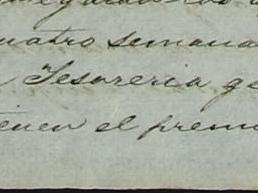 cuatro semana
Tesoreria ge
tienen el premi